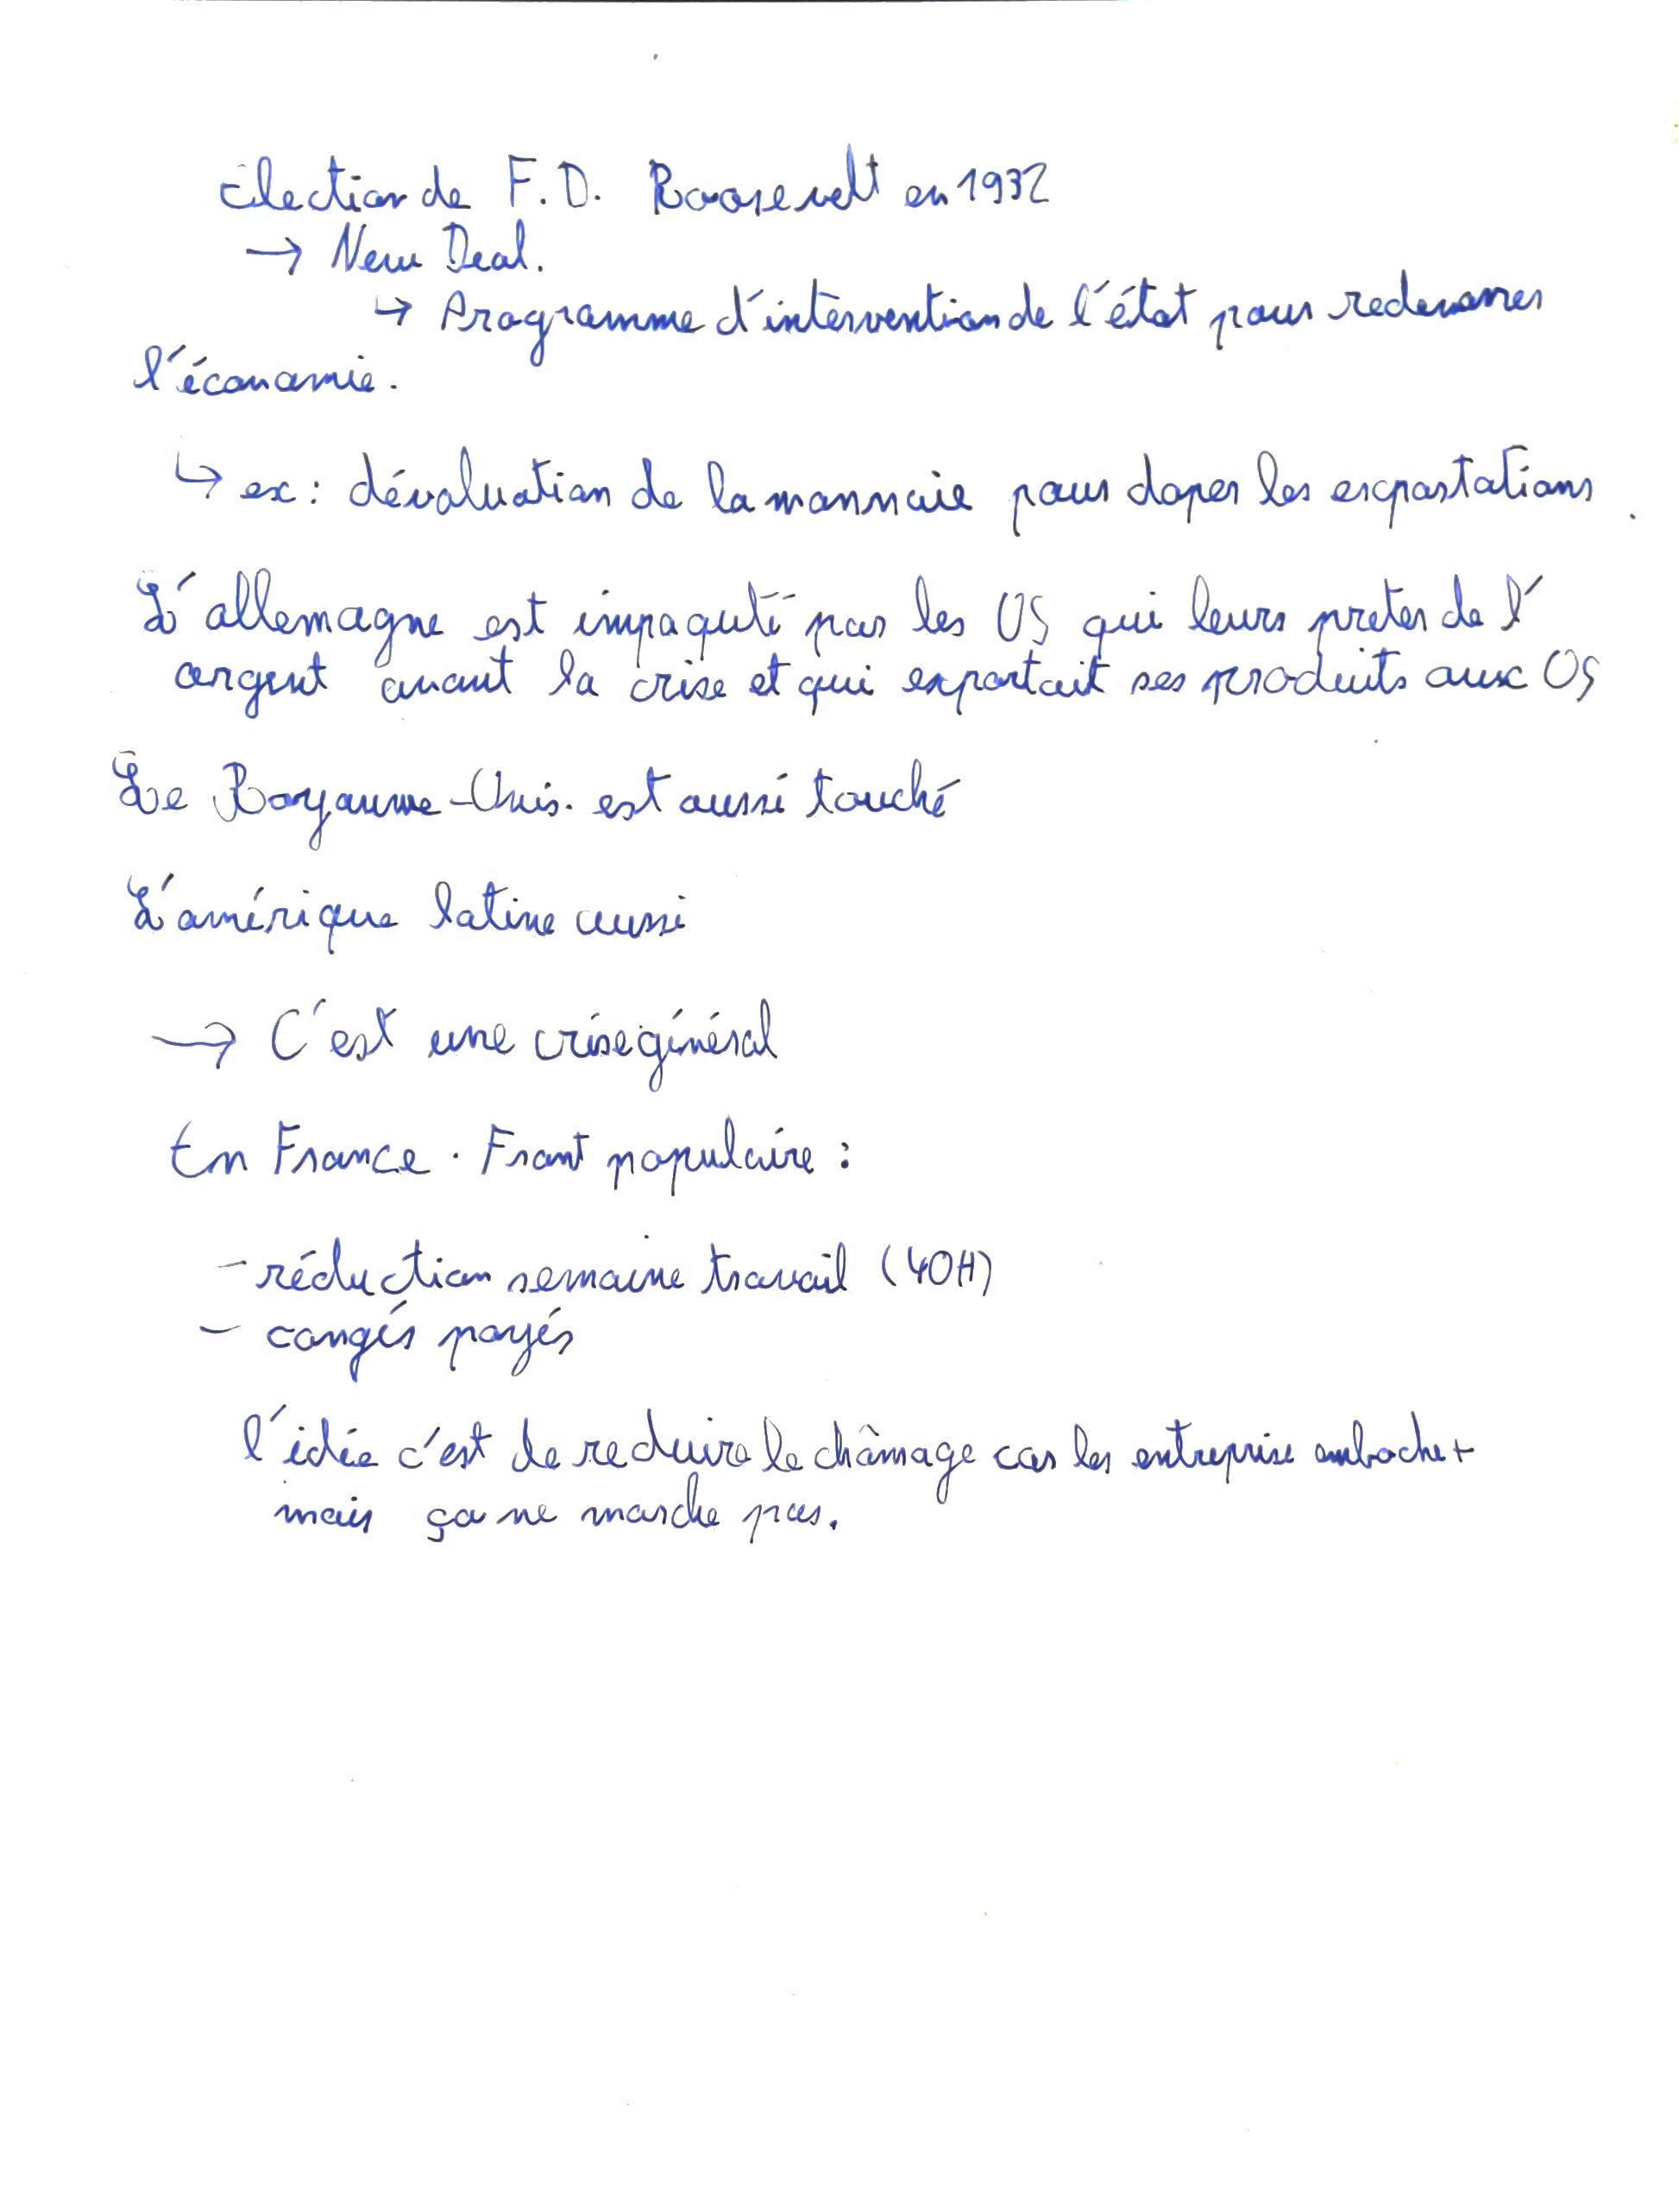 Election de F.D. Roosevelt en 1932
→ New Deal.
↳ Programme d'intervention de l'état pour redemarrer
l'économie.
↳ ex: dévaluation de la monnaie pour doper les exportations.
L'allemagne est impaquté par les US qui leurs preter de l'
argent avant la crise et qui exportait ses produits aux US
Le Royaume-Unis. est aussi touché
L'amérique latine aussi
→ C'est une crise général
En France. Front populaire :
- réduction semaine travail (40H)
- congés payés
l'idée c'est de reduire le chômage car les entreprise embauche +
mais ça ne marche pas.